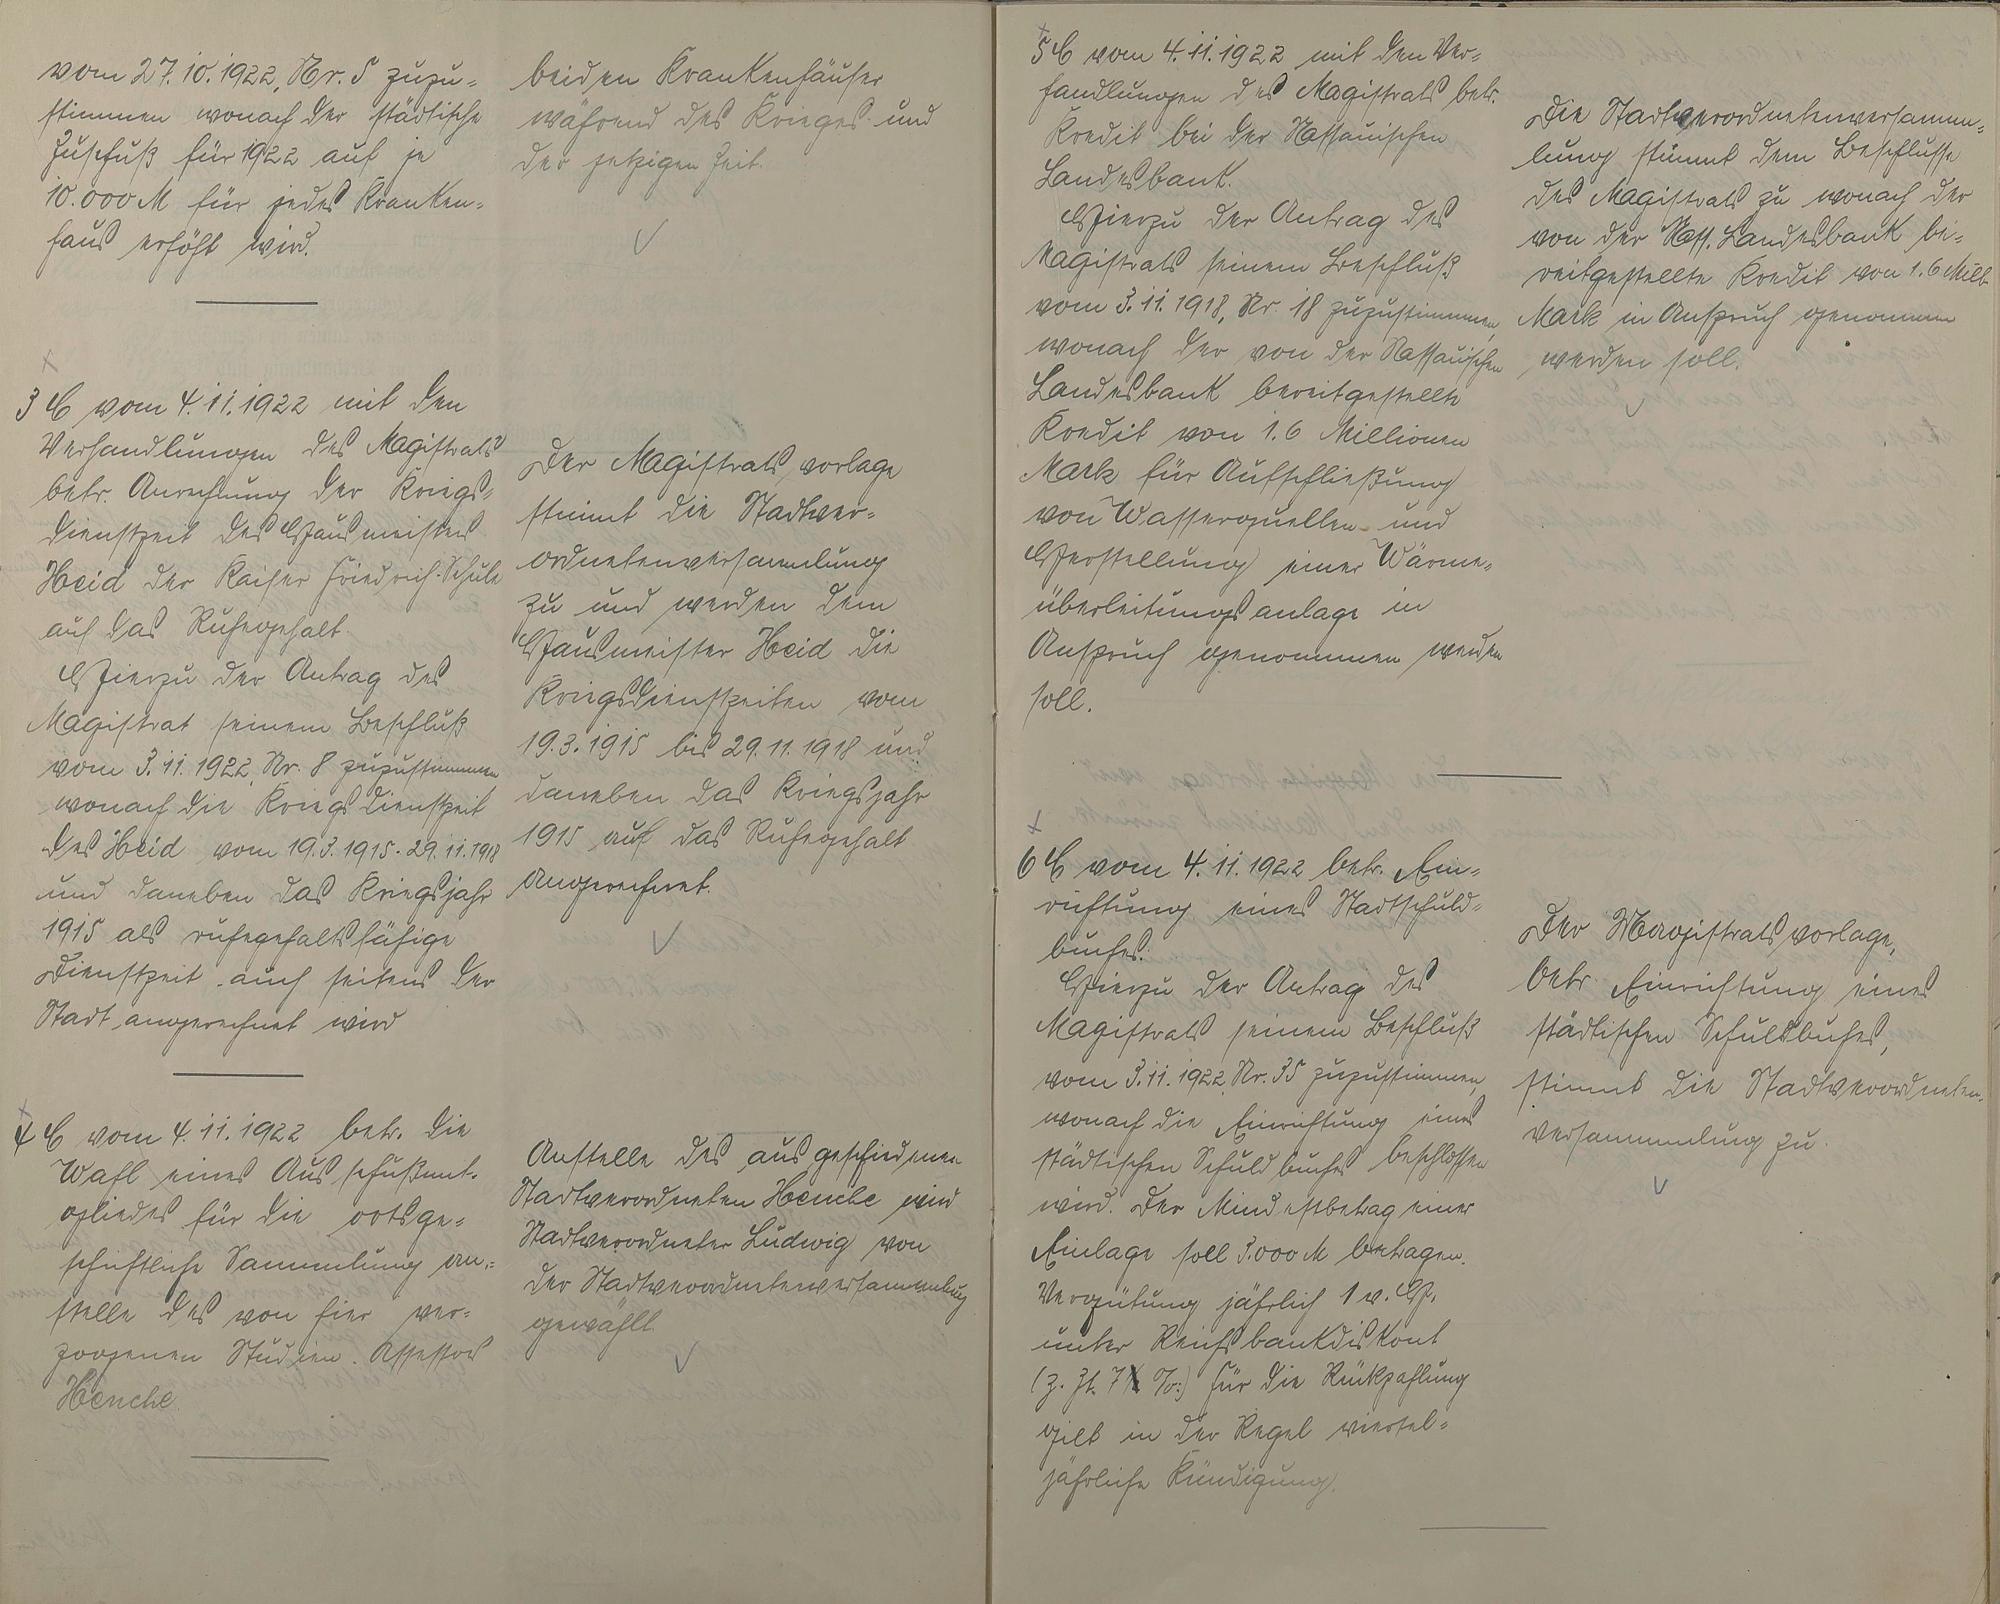 vom 27.10.1922, Nr. 5 zuzu-
stimmen wonach der städtische
Zuschuß für 1922 auf je
10.000 M für jedes Kranken-
haus erhöht wird.
beiden Krankenhäuser
während des Krieges und
der jetzigen Zeit.
3 C vom 4.11.1922 mit den
Verhandlungen des Magistrats
betr. Anrechnung der Kriegs-
dienstzeit des Hausmeisters
Heid der Kaiser Friedrich-Schule
auf das Ruhegehalt.
Hierzu der Antrag des
Magistrat seinem Beschluß
vom 3.11.1922, Nr. 8 zuzustimmen
wonach die Kriegsdienstzeit
des Heid vom 19.3.1915-29.11.1918
und daneben das Kriegsjahr
1915 als ruhegehaltsfähige
Dienstzeit auch seitens der
Stadt angerechnet wird
Der Magistratsvorlage
stimmt die Stadtver-
ordnetenversammlung
zu und werden dem
Hausmeister Heid die
Kriegsdienstzeiten vom
19.3.1915 bis 29.11.1918 und
daneben das Kriegsjahr
1915 auf das Ruhegehalt
angerechnet.
4 C vom 4.11.1922 betr. die
Wahl eines Ausschußmit-
gliedes für die ortsge-
schichtliche Sammlung an-
stelle des von hier ver-
zogenen Studien-Assessors
Henche.
Anstelle des ausgeschiedenen
Stadtverordneten Henche wird
Stadtverordneter Ludwig von
der Stadtverordnetenversammlung
gewählt.
5 C vom 4.11.1922 mit den Ver-
handlungen des Magistrats betr.
Kredit bei der Nassauischen
Landesbank.
Hierzu der Antrag des
Magistrats seinem Beschluß
vom 3.11.1918, Nr. 18 zuzustimmen,
wonach der von der Nassauischen
Landesbank bereitgestellte
Kredit von 1.6 Millionen
Mark für Aufschließung
von Wasserquellen und
Herstellung einer Wärme-
überleitungsanlage in
Anspruch genommen werden
soll.
Die Stadtverordnetenversamm-
lung stimmt dem Beschlusse
des Magistrats zu wonach der
von der Nass. Landesbank be-
reitgestellte Kredit von 1.6 Mill.
Mark in Anspruch genommen
werden soll.
6 C vom 4.11.1922 betr. Ein-
richtung eines Stadtschuld-
buches.
Hierzu der Antrag des
Magistrats seinem Beschluß
vom 3.11.1922, Nr. 35 zuzustimmen,
wonach die Einrichtung eines
städtischen Schuldbuches beschlossen
wird. Der Mindestbetrag einer
Einlage soll 3.000 M betragen.
Vergütung jährlich 1 v. H.
unter Reichsbankdiskont
(z. Zt. 7 %) Für die Rückzahlung
gilt in der Regel viertel-
jährliche Kündigung.
Der Magistratsvorlage,
betr. Einrichtung eines
städtischen Schuldbuches,
stimmt die Stadtverordneten-
versammlung zu.